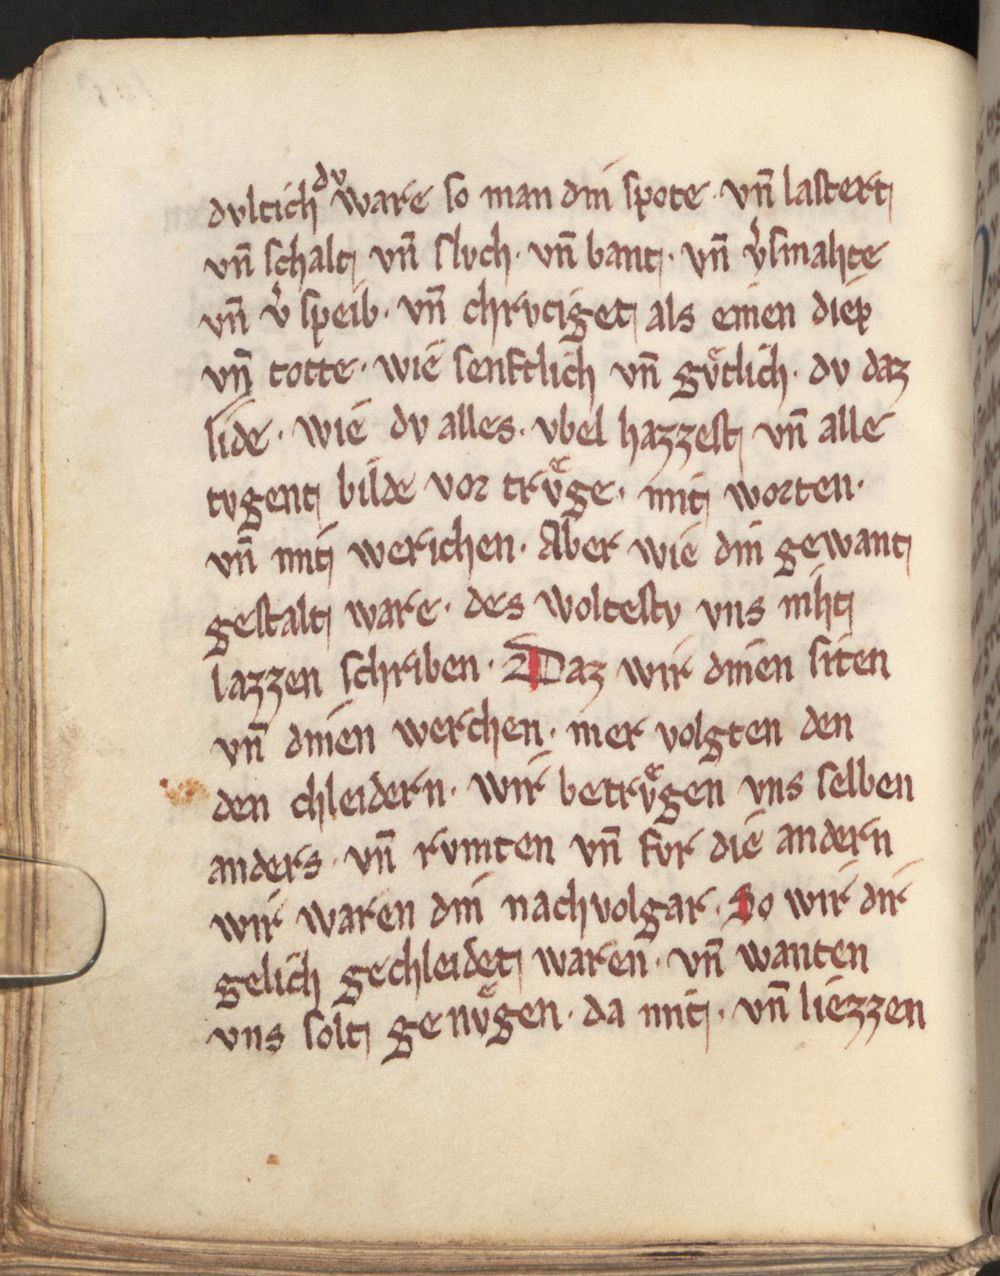 dvltich dv ware so man din spote · vn̄ lastert
vn̄ schalt vn̄ slvch · vn̄ bant · vn̄ v̉smahte
vn̄ v̉ speib · vn̄ chrvciget als einen diep
vn̄ totte · wie senftlich vn̄ gvͤtlich · dv daz
lide · wie dv alles · vbel hazzest vn̄ alle
tvgent bilde vor trvͤge · mit worten ·
vn̄ mit werichen · Aber wie din gewant
gestalt ware · des woltestv vns niht
lazzen schriben · Daz wir dinen siten
vn̄ dinen werchen · mer volgten den
den chleidern · wir betrvͤgen vns selben
anders · vn̄ rvmten vn̄ fvr die andern
wir waren din nachvolgar · So wir dir
gelich gechleidet waren · vn̄ wanten
vns solt ge nvͤgen · da mit · vn̄ liezzen